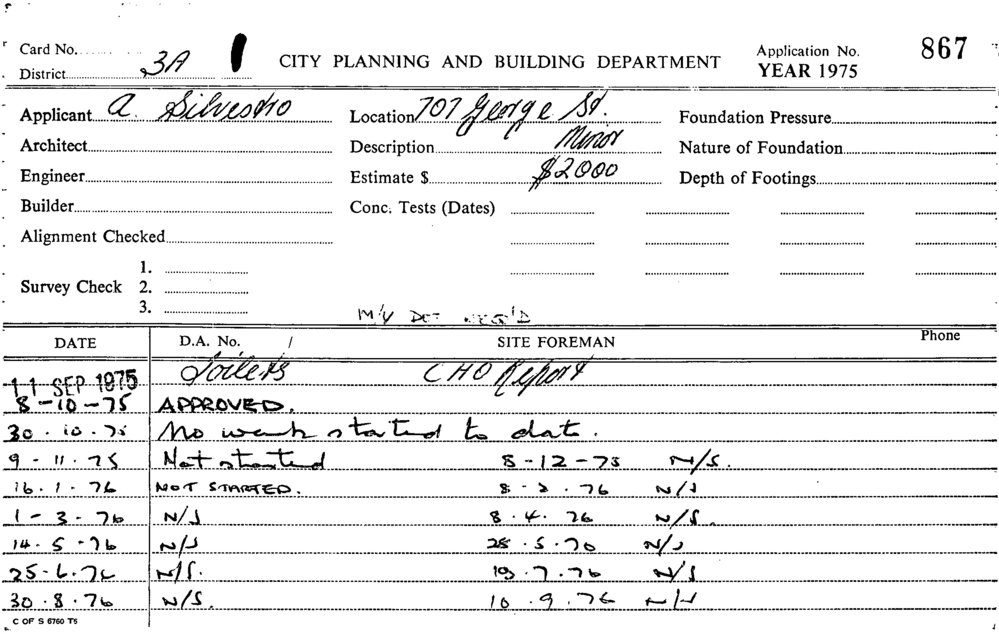 Card No.
District 3A 1
CITY PLANNING AND BUILDING DEPARTMENT
Application No. 867
YEAR 1975
Applicant A. Silvestro
Location 707 George St.
Foundation Pressure
Architect
Description Minor
Nature of Foundation
Engineer
Estimate $ $2000
Depth of Footings
Builder
Conc. Tests (Dates)
Alignment Checked
Survey Check
1.
2.
3.
M/V DET
DATE D.A. No. / SITE FOREMAN Phone
11 SEP 1975 Toilets CHO Report
8-10-75 APPROVED.
30.10.75 No work started to date.
9-11-75 Not started 8-12-75 N/S.
16.1.76 NOT STARTED. 8-2.76 N/S
1-3-76 N/S 8.4.76 N/S.
14.5-76 N/S 28.5.76 N/S
25-6.76 N/S. 19.7.76 N/S
30.8.76 N/S. 10.9.76 N/S
C OF S 6760 T6